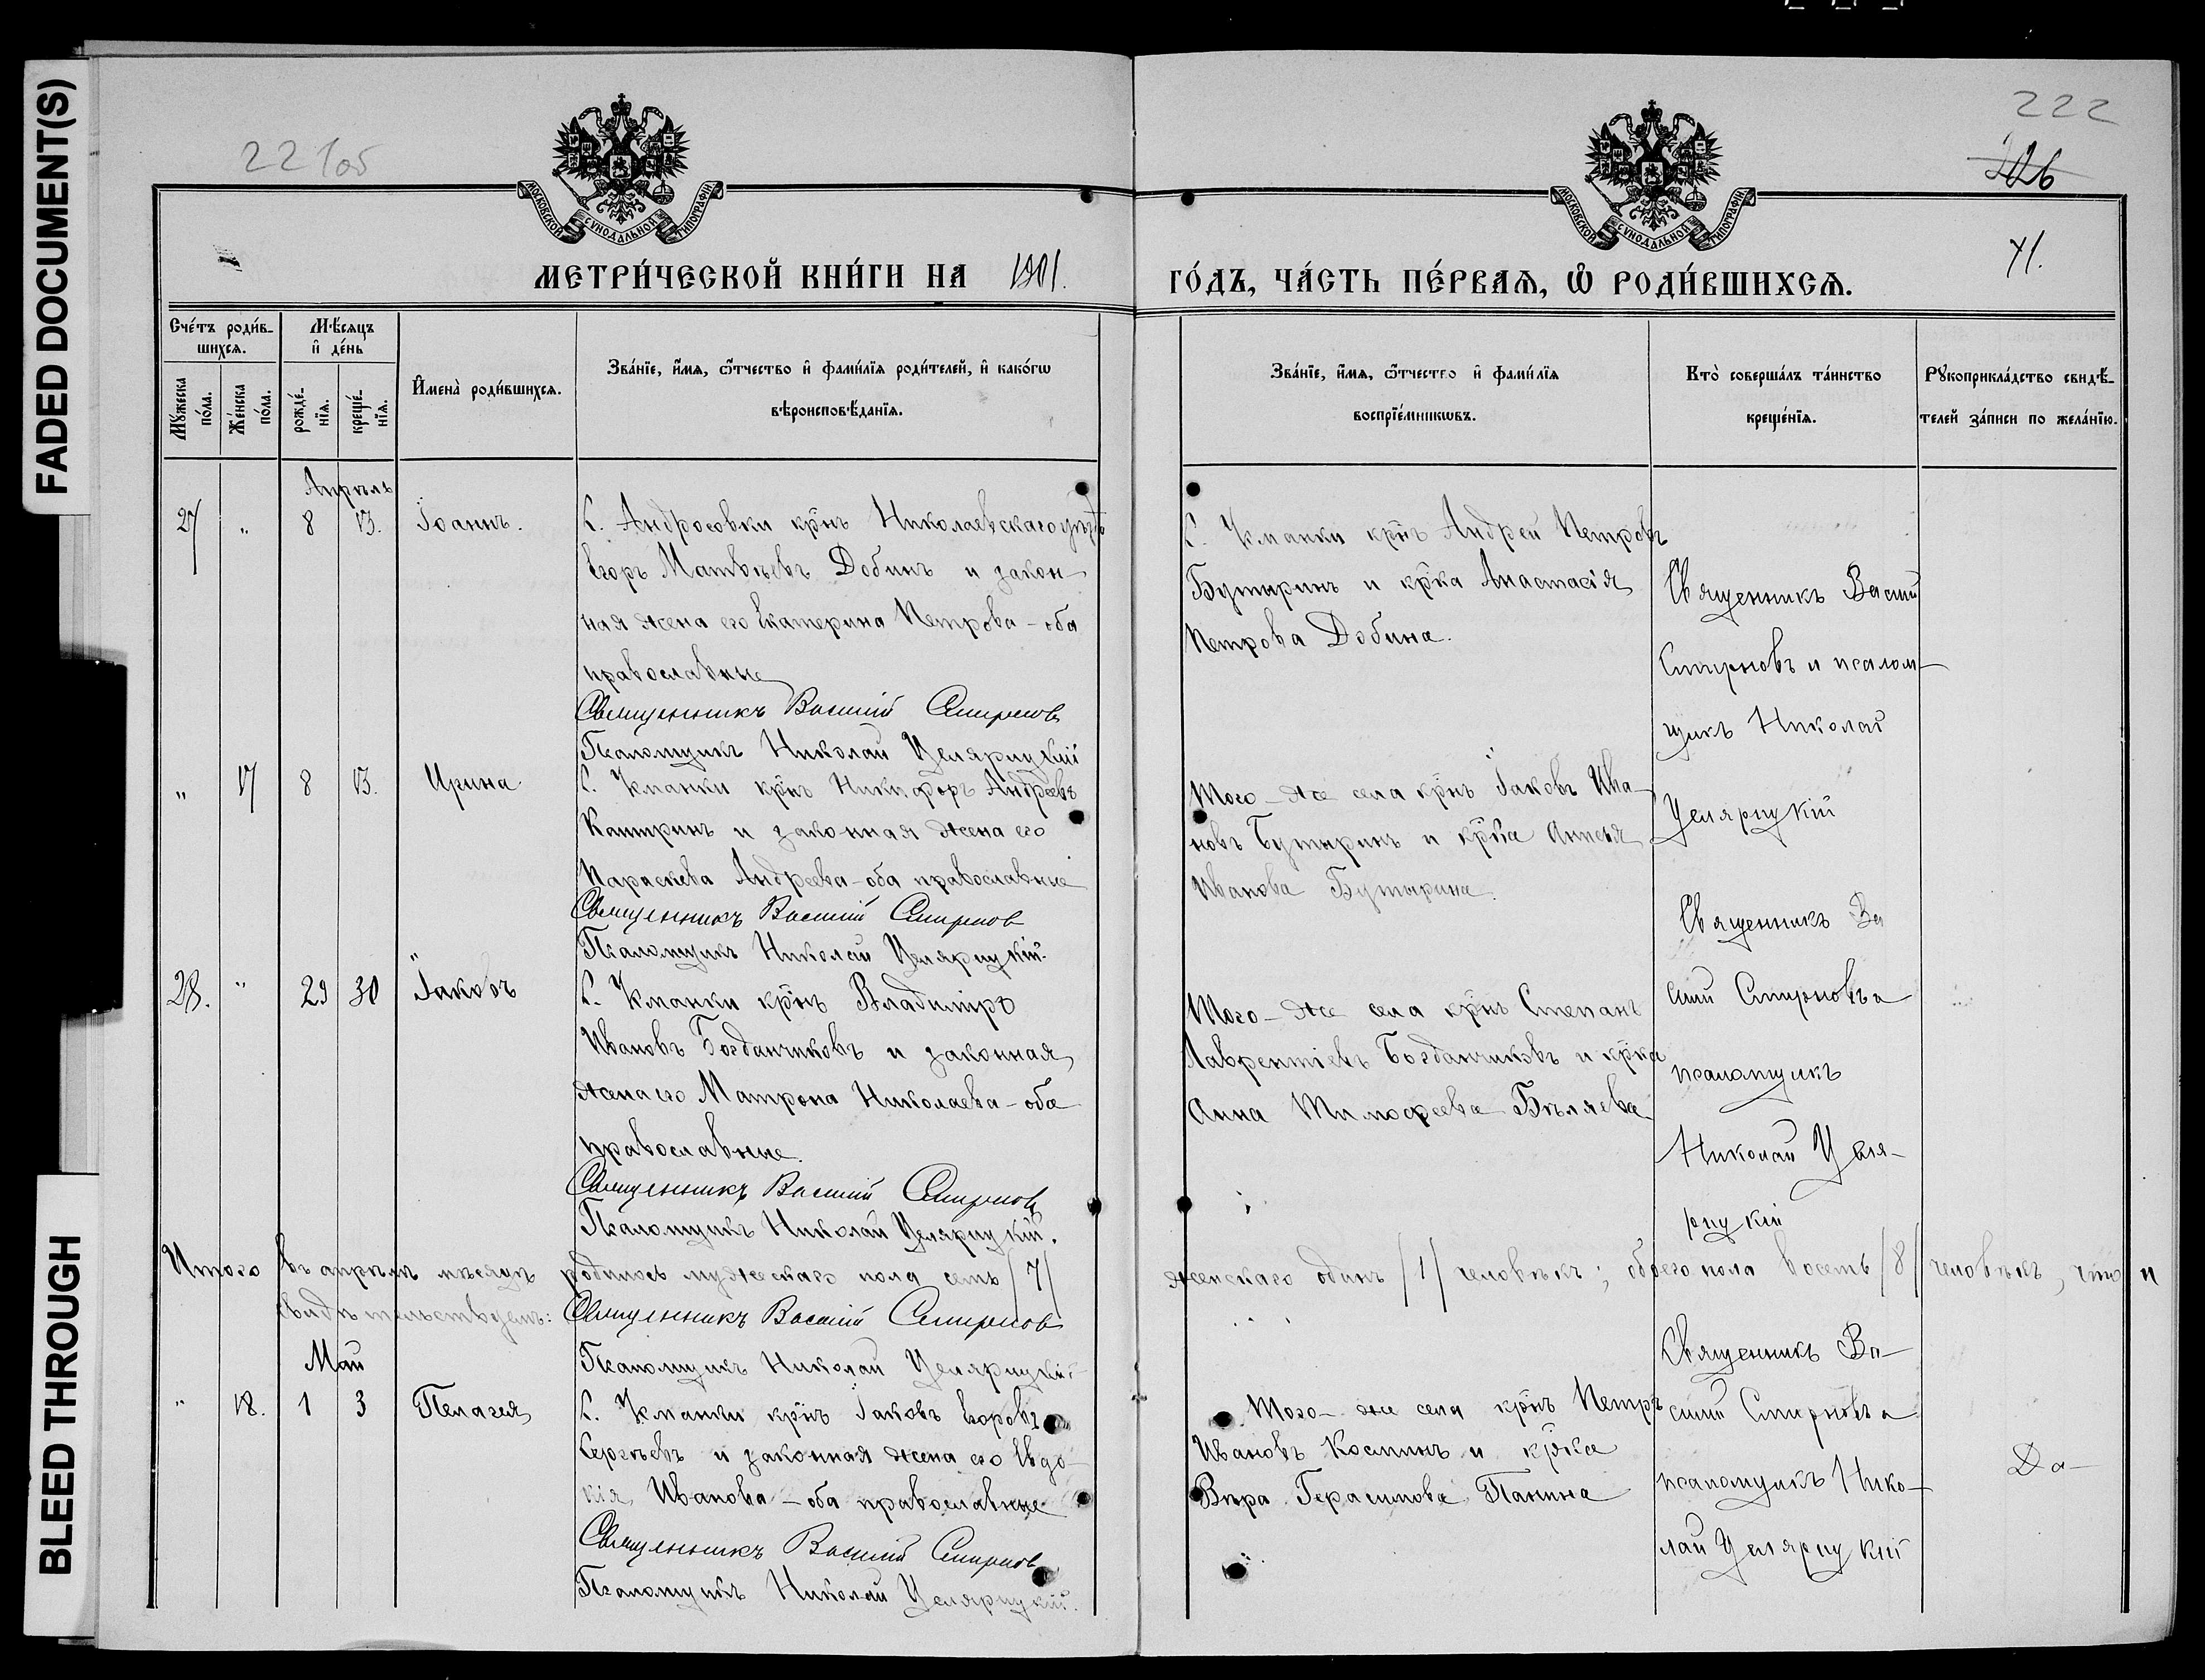 FADED DOCUMENT(S)
BLEED THROUGH
221об
222
226
71.
МОСКОВСКОЙ СѴНОДАЛЬНОЙ ТИПОГРАФІИ
МОСКОВСКОЙ СѴНОДАЛЬНОЙ ТИПОГРАФІИ
МЕТРИ́ЧЕСКОЙ КНИ́ГИ НА 1901.
ГО́ДЪ, ЧА́СТЬ ПЕ́РВАѦ, Ѡ҆ РОДИ́ВШИХСѦ.
Сче́тъ роди́в-
шихсѧ.
Мꙋ́жеска
по́ла.
Же́нска
по́ла.
Мѣ́сѧцъ
и҆ де́нь
рожде́-
нїѧ.
креще́-
нїѧ.
И҆мена̀ роди́вшихсѧ.
Зва́нїе, и҆́мѧ, ѻ҆́тчество и҆ фами́лїѧ роди́телей, и҆ како́гѡ
вѣроисповѣ́данїѧ.
Зва́нїе, и҆́мѧ, ѻ҆́тчество и҆ фами́лїѧ
воспрїе́мникѡвъ.
Кто̀ соверша́лъ та́инство
креще́нїѧ.
Рꙋкоприкла́дство свидѣ́-
телей за́писи по жела́нїю.
Апрѣль
27 " 8 13. Іоаннъ.
С. Андросовки кр̃нъ Николаевскаго уѣзд
Егоръ Матвѣевъ Добинъ и закон-
ная жена его Екатерина Петрова - оба
православные
Священникъ Василій Смирнов
Псаломщикъ Николай Целярицкій
С. Кманки кр̃нъ Андрей Петровъ
Бутыринъ и кр̃ка Анастасія
Петрова Добина.
Священникъ Василій
Смирновъ и псалом-
щикъ Николай
Целярицкій
" 17 8 13. Ирина
С. Кманки кр̃нъ Никифоръ Андреевъ
Каштринъ и законная жена его
Параскева Андреева - оба православные
Священникъ Василій Смирнов
Псаломщикъ Николай Целярицкій.
Того-же села кр̃нъ Іаковъ Ива-
новъ Бутыринъ и кр̃ка
Иванова Бутырина.
Священникъ Ва
силій Смирновъ и
псаломщикъ
Николай Целя-
рицкій
28. " 29 30 Іаковъ
С. Кманки кр̃нъ Владиміръ
Ивановъ Богданчиковъ и законная
жена его Матрона Николаева - оба
православные.
Священникъ Василій Смирнов
Псаломщикъ Николай Целярицкій.
Того-же села кр̃нъ Степанъ
Лаврентіевъ Богданчиковъ и кр̃ка
Анна Тимофеева Бѣляева
Итого въ апрѣлѣ мѣсяцѣ родилось мужескаго пола семь /7/ женскаго одинъ /1/ человѣкъ; обоего пола восемь /8/ человѣкъ, что и
свидѣтельствуемъ: Священникъ Василій Смирнов
Псаломщикъ Николай Целярицкій
Май
" 18. 1 3 Пелагея
С. Кманки кр̃нъ Іаковъ Егоровъ
Сергѣевъ и законная жена его Евдо-
кія Иванова - оба православные
Священникъ Василій Смирнов
Псаломщикъ Николай Целярицкій.
Того-же села кр̃нъ Петръ
Ивановъ Косминъ и кр̃ка
Вѣра Герасимова Панина
Священникъ Ва-
силій Смирновъ и
псаломщикъ Нико-
лай Целярицкій
До-